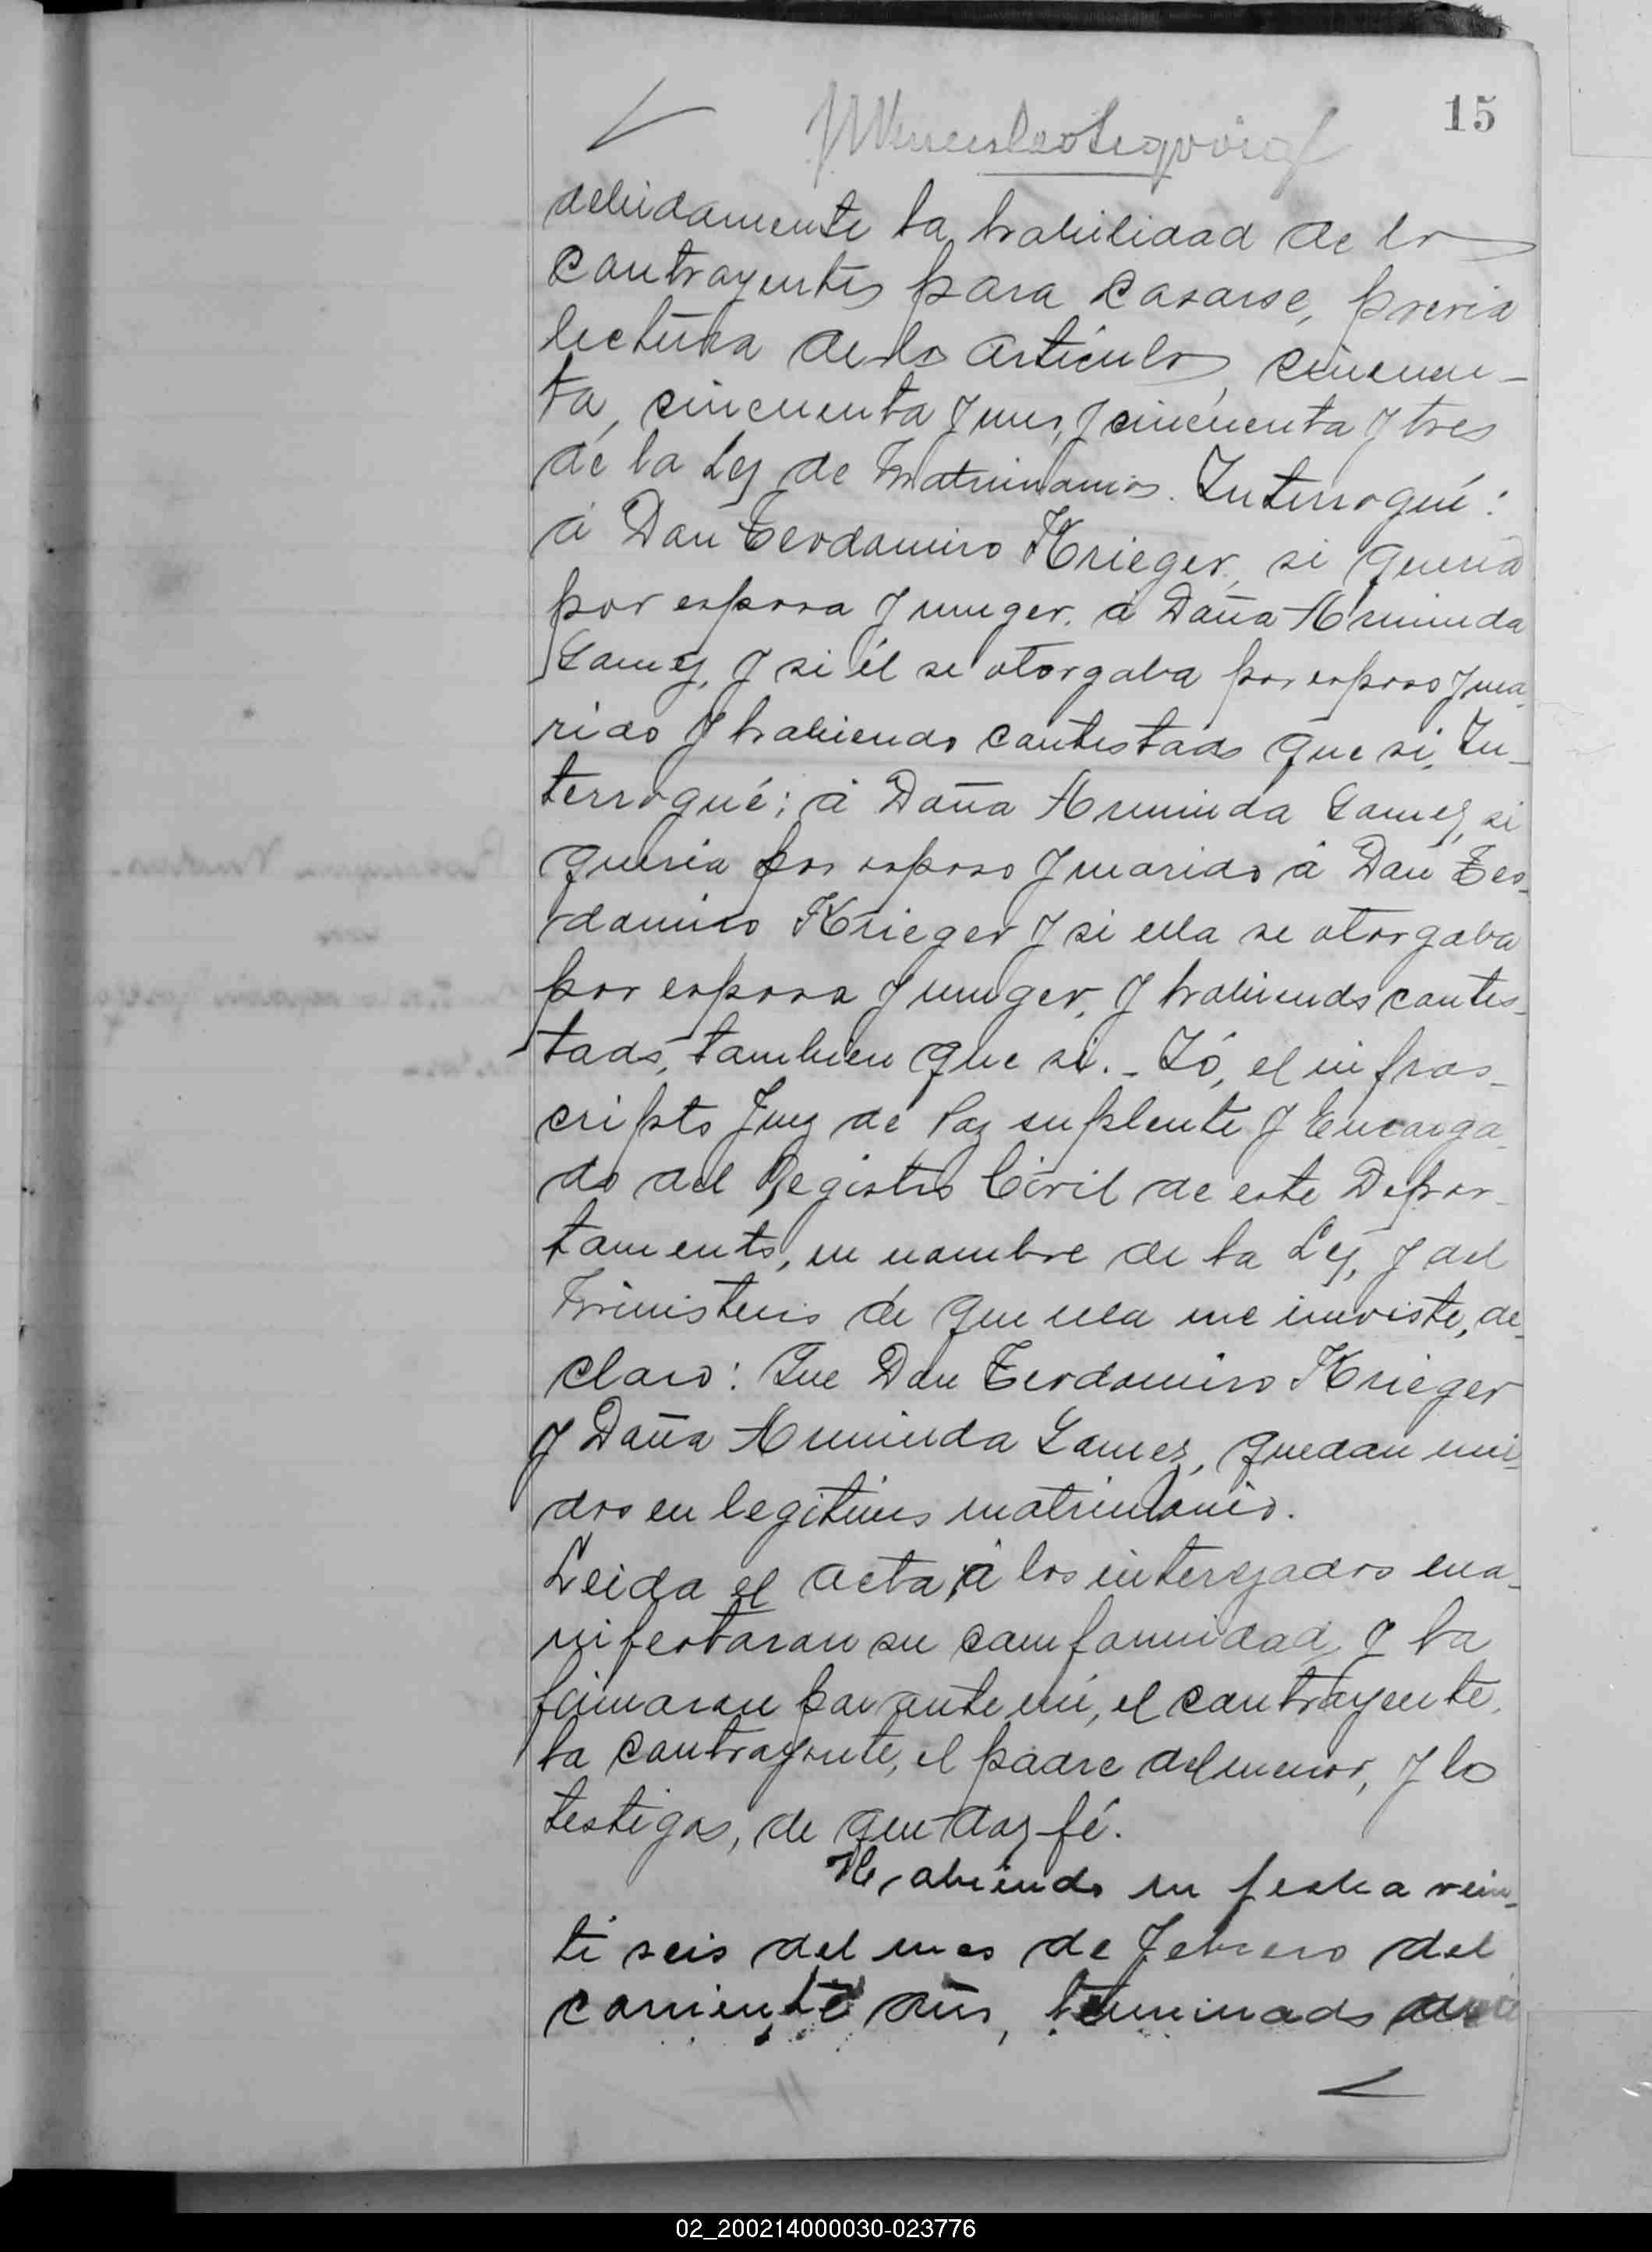 15
debidamente la habilidad de los
contrayentes para casarse, previa
lectura de los articulos, cincuen-
ta, cincuenta y uno, y cincuenta y tres
de la Ley de Matrimonios. Interrogué:
á Don Teodomiro Krieger, si queria
por esposa y muger, á Doña Arminda
Gamez, y si él se otorgaba por esposo y ma-
rido y habiendo contestado que si, In-
terrogué; á Doña Arminda Gamez, si
queria por esposo y marido á Don Teo-
domiro Krieger y si ella se otorgaba
por esposa y muger, y habiendo contes-
tado, tambien que si. - Yó, el infras-
cripto Juez de Paz suplente y Encarga-
do del Registro Civil de este Depar-
tamento, en nombre de la Ley, y del
Ministerio de que ella me inviste, de-
claro: Que Don Teodomiro Krieger
y Doña Arminda Gamez, quedan uni-
dos en legitimo matrimonio.
Leida el acta, á los interezados ma-
nifestaron su comformidad, y la
firmaron por ante mi, el contrayente,
la contrayente, el padre del menor, y los
testigos, de que doy fé.
Habiendo en fecha vein-
ti seis del mes de Febrero del
corriente año, terminado
02_200214000030-023776